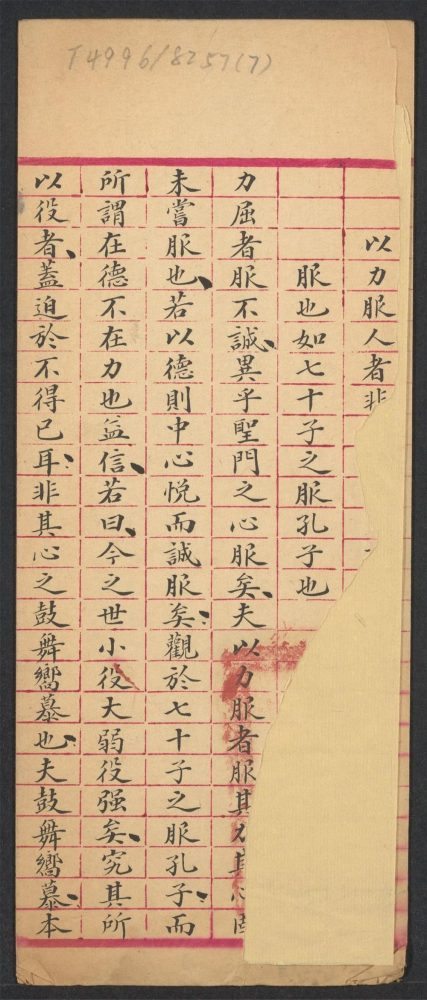 T4996/8257(7)
以力服人者非
服也如七十子之服孔子也
力屈者服不誠異乎聖門之心服矣夫以力服者服其力其心固
未嘗服也若以德則中心悅而誠服矣觀於七十子之服孔子而
所謂在德不在力也益信若曰今之世小役大弱役强矣究其所
以役者蓋迫於不得已耳非其心之鼓舞嚮慕也夫鼓舞嚮慕本